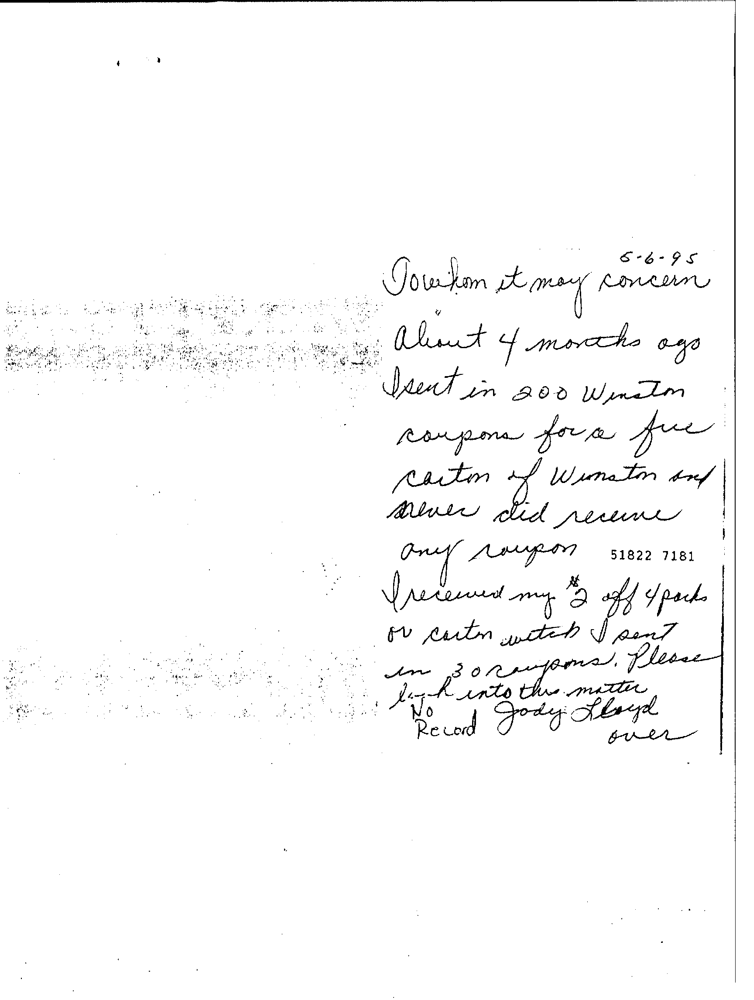 5-6-95
To whom it may concern
About 4 months ago
I sent in 200 Winston
coupons for a free
carton of Winston and
never did receive
any coupon 51822 7181
I received my $2 off 4 packs
or carton witch I sent
in 30 coupons. Please
look into this matter
No
Record Jody Lloyd
over